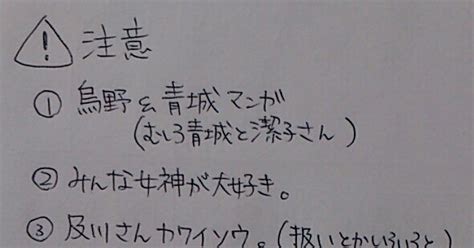 ! 注意
① 烏野&青城マンガ
(むしろ青城と潔子さん)
② みんな女神が大好き。
③ 及川さんカワイソウ。(扱いとかいろいろと)